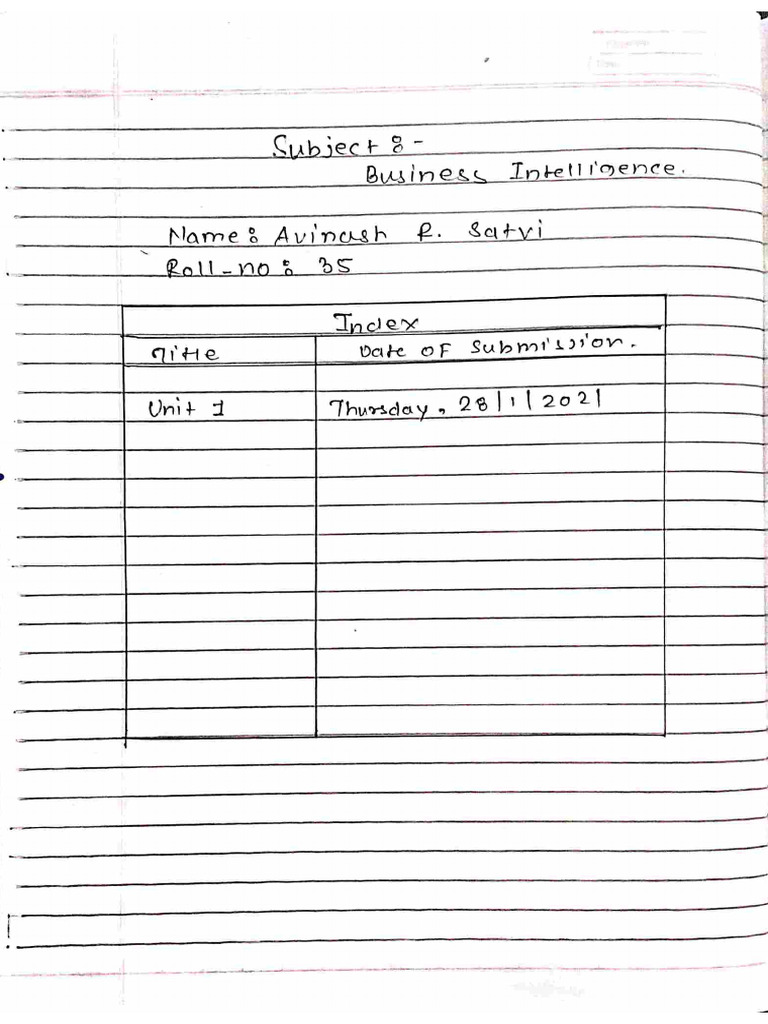 Subject :-
Business Intelligence.
Name: Avinash R. Satvi
Roll-no : 35
Index
Title Date of Submission.
Unit 1 Thursday, 28/1/2021